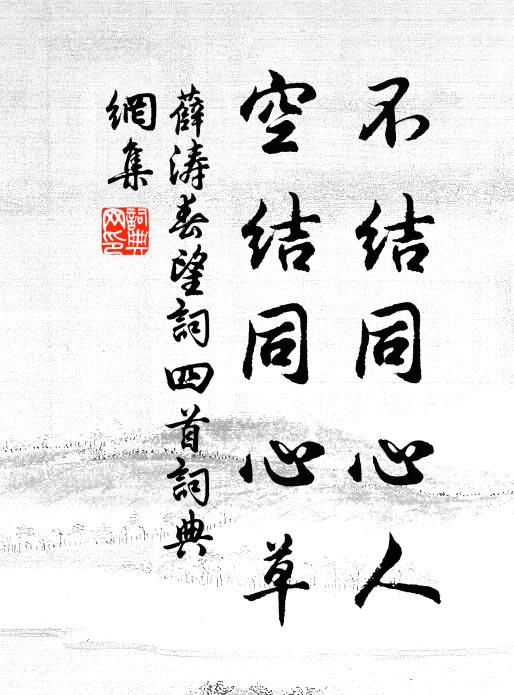 不结同心人
空结同心草
薛涛春望词四首词典
網集
詞典
网印